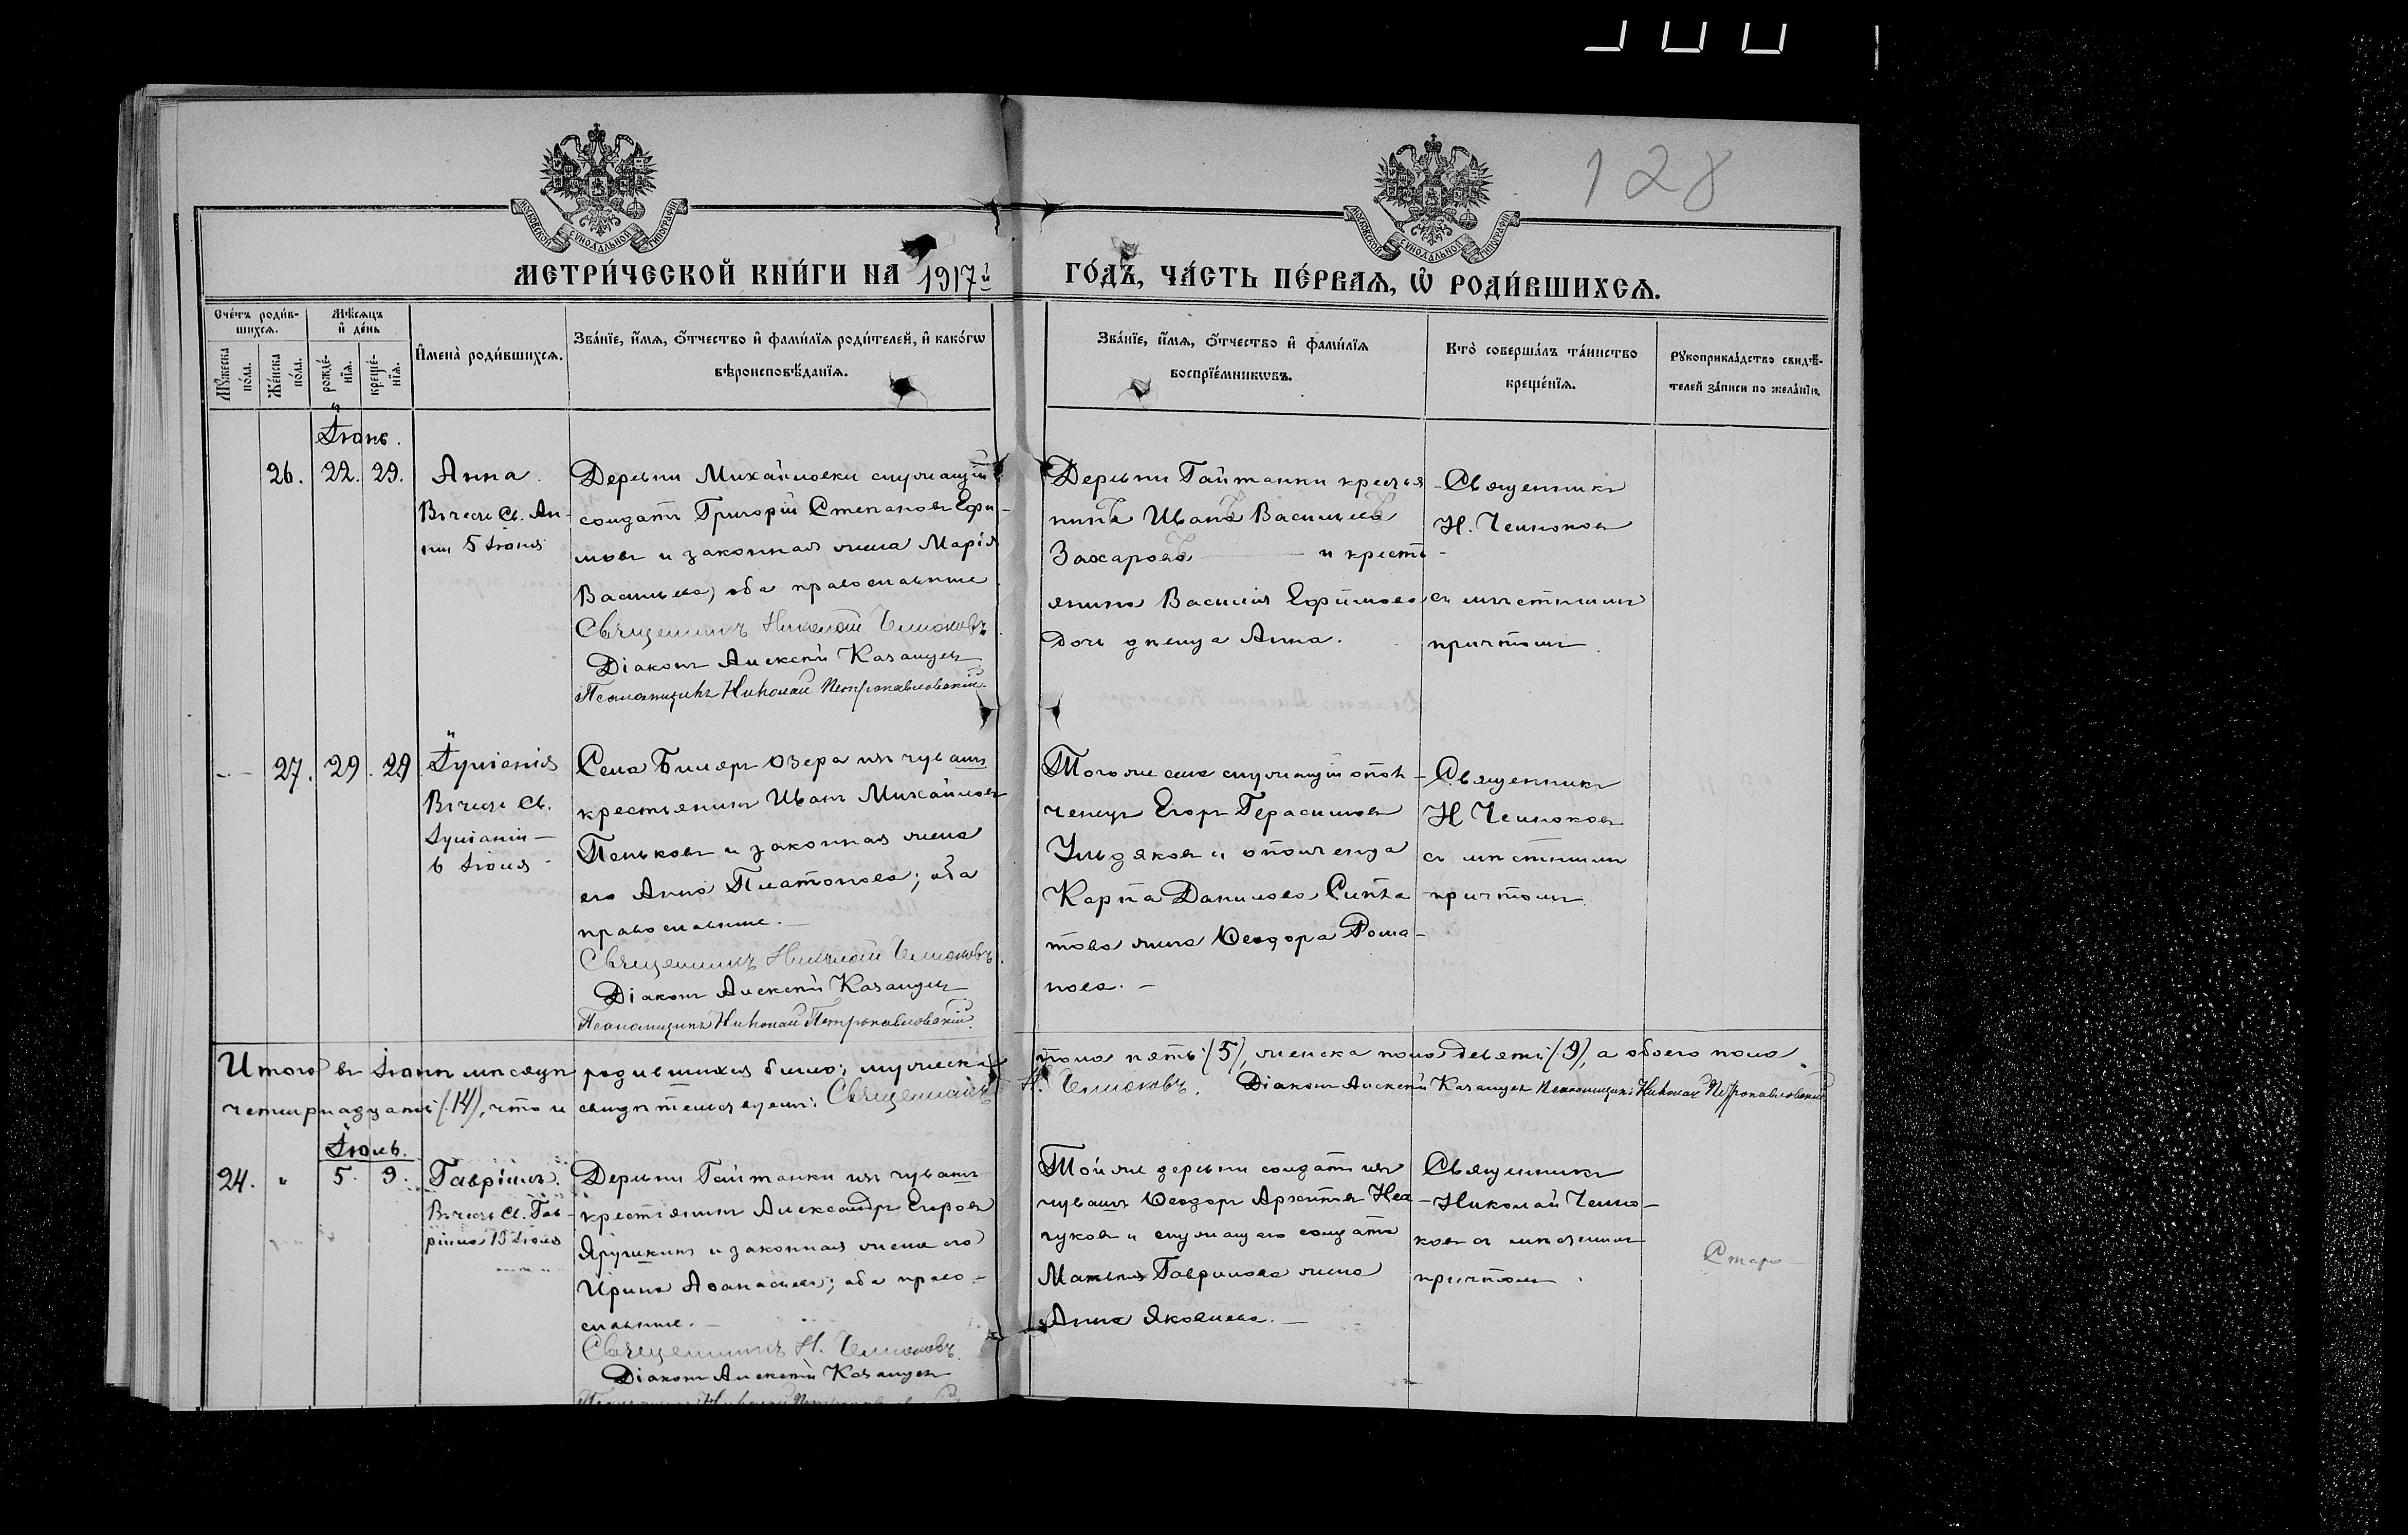 128
МОСКОВСКОЙ СѴНОДАЛЬНОЙ ТИПОГРАФІИ
МОСКОВСКОЙ СѴНОДАЛЬНОЙ ТИПОГРАФІИ
МЕТРИ́ЧЕСКОЙ КНИ́ГИ НА 1917й ГО́ДЪ, ЧА́СТЬ ПЕ́РВАѦ, Ѡ҆ РОДИ́ВШИХСѦ.
Сче́тъ роди́в-
шихсѧ.
Мꙋ́жеска по́ла.
Же́нска по́ла.
Мѣ́сѧцъ
и҆ де́нь
рожде́-
нїѧ.
креще́-
нїѧ.
И҆мена̀ роди́вшихсѧ.
Зва́нїе, и҆́мѧ, ѻ҆́тчество и҆ фами́лїѧ роди́телей, и҆ како́гѡ
вѣроисповѣ́данїѧ.
Зва́нїе, и҆́мѧ, ѻ҆́тчество и҆ фами́лїѧ
воспрїе́мникѡвъ.
Кто̀ соверша́лъ та́инство
креще́нїѧ.
Рꙋкоприкла́дство свидѣ́-
телей за́писи по жела́нїю.
Іюнь.
26. 22. 29.
Анна.
Въ честь Св. Ан-
ны 5 Іюня
Деревни Михайловки служащій
солдатъ Григорій Степановъ Ефи-
мовъ и законная жена Марія
Васильева, оба православные
Священникъ Николай Чемоковъ
Діаконъ Алексѣй Казанцевъ
Псаломщикъ Николай Петропавловскій.
Деревни Гайтанки крестья-
нинъ Иванъ Васильевъ
Захаровъ и кресть-
янина Василія Ефимова
дочь дѣвица Анна.
Священникъ
Н. Чемоковъ
съ мѣстнымъ
причтомъ
27. 29. 29
Іуліанія
Въ честь Св.
Іуліаніи
Іюля
Села Биляръ Озера изъ чувашъ
крестьянинъ Иванъ Михайловъ
Пеньковъ и законная жена
его Анна Платонова; оба
православные.
Священникъ Николай Чемоковъ.
Діаконъ Алексѣй Казанцевъ
Псаломщикъ Николай Петропавловскій.
Того же села служащій опол-
ченецъ Егоръ Герасимовъ
и ополченца
Карпа Данилова
жена Ѳеодора Рома-
нова. -
Священникъ
Н. Чемоковъ
съ мѣстнымъ
причтомъ
Итого въ Іюнѣ мѣсяцѣ родившихся было: мужеска пола пять (5), женска пола девять (9), а обоего пола
четырнадцать (14), что и свидѣтельствуемъ: Священникъ Н. Чемоковъ. Діаконъ Алексѣй Казанцевъ Псаломщикъ Николай Петропавловскій
Іюль.
24. " 5. 9.
Гавріилъ.
Въ честь Св. Гав-
ріила 13 Іюля
Деревни Гайтанки изъ чувашъ
крестьянинъ Александръ Егоровъ
Ярушкинъ и законная жена его
Ирина Аѳанасьева; оба право-
славные. -
Священникъ Н. Чемоковъ.
Діаконъ Алексѣй Казанцевъ
Той же деревни солдатъ изъ
чувашъ Ѳеодоръ
и служащаго солдата
Матвѣя Гаврилова жена
Анна Яковлева. -
Священникъ
Николай Чемо-
ковъ съ мѣстнымъ
причтомъ.
Старо